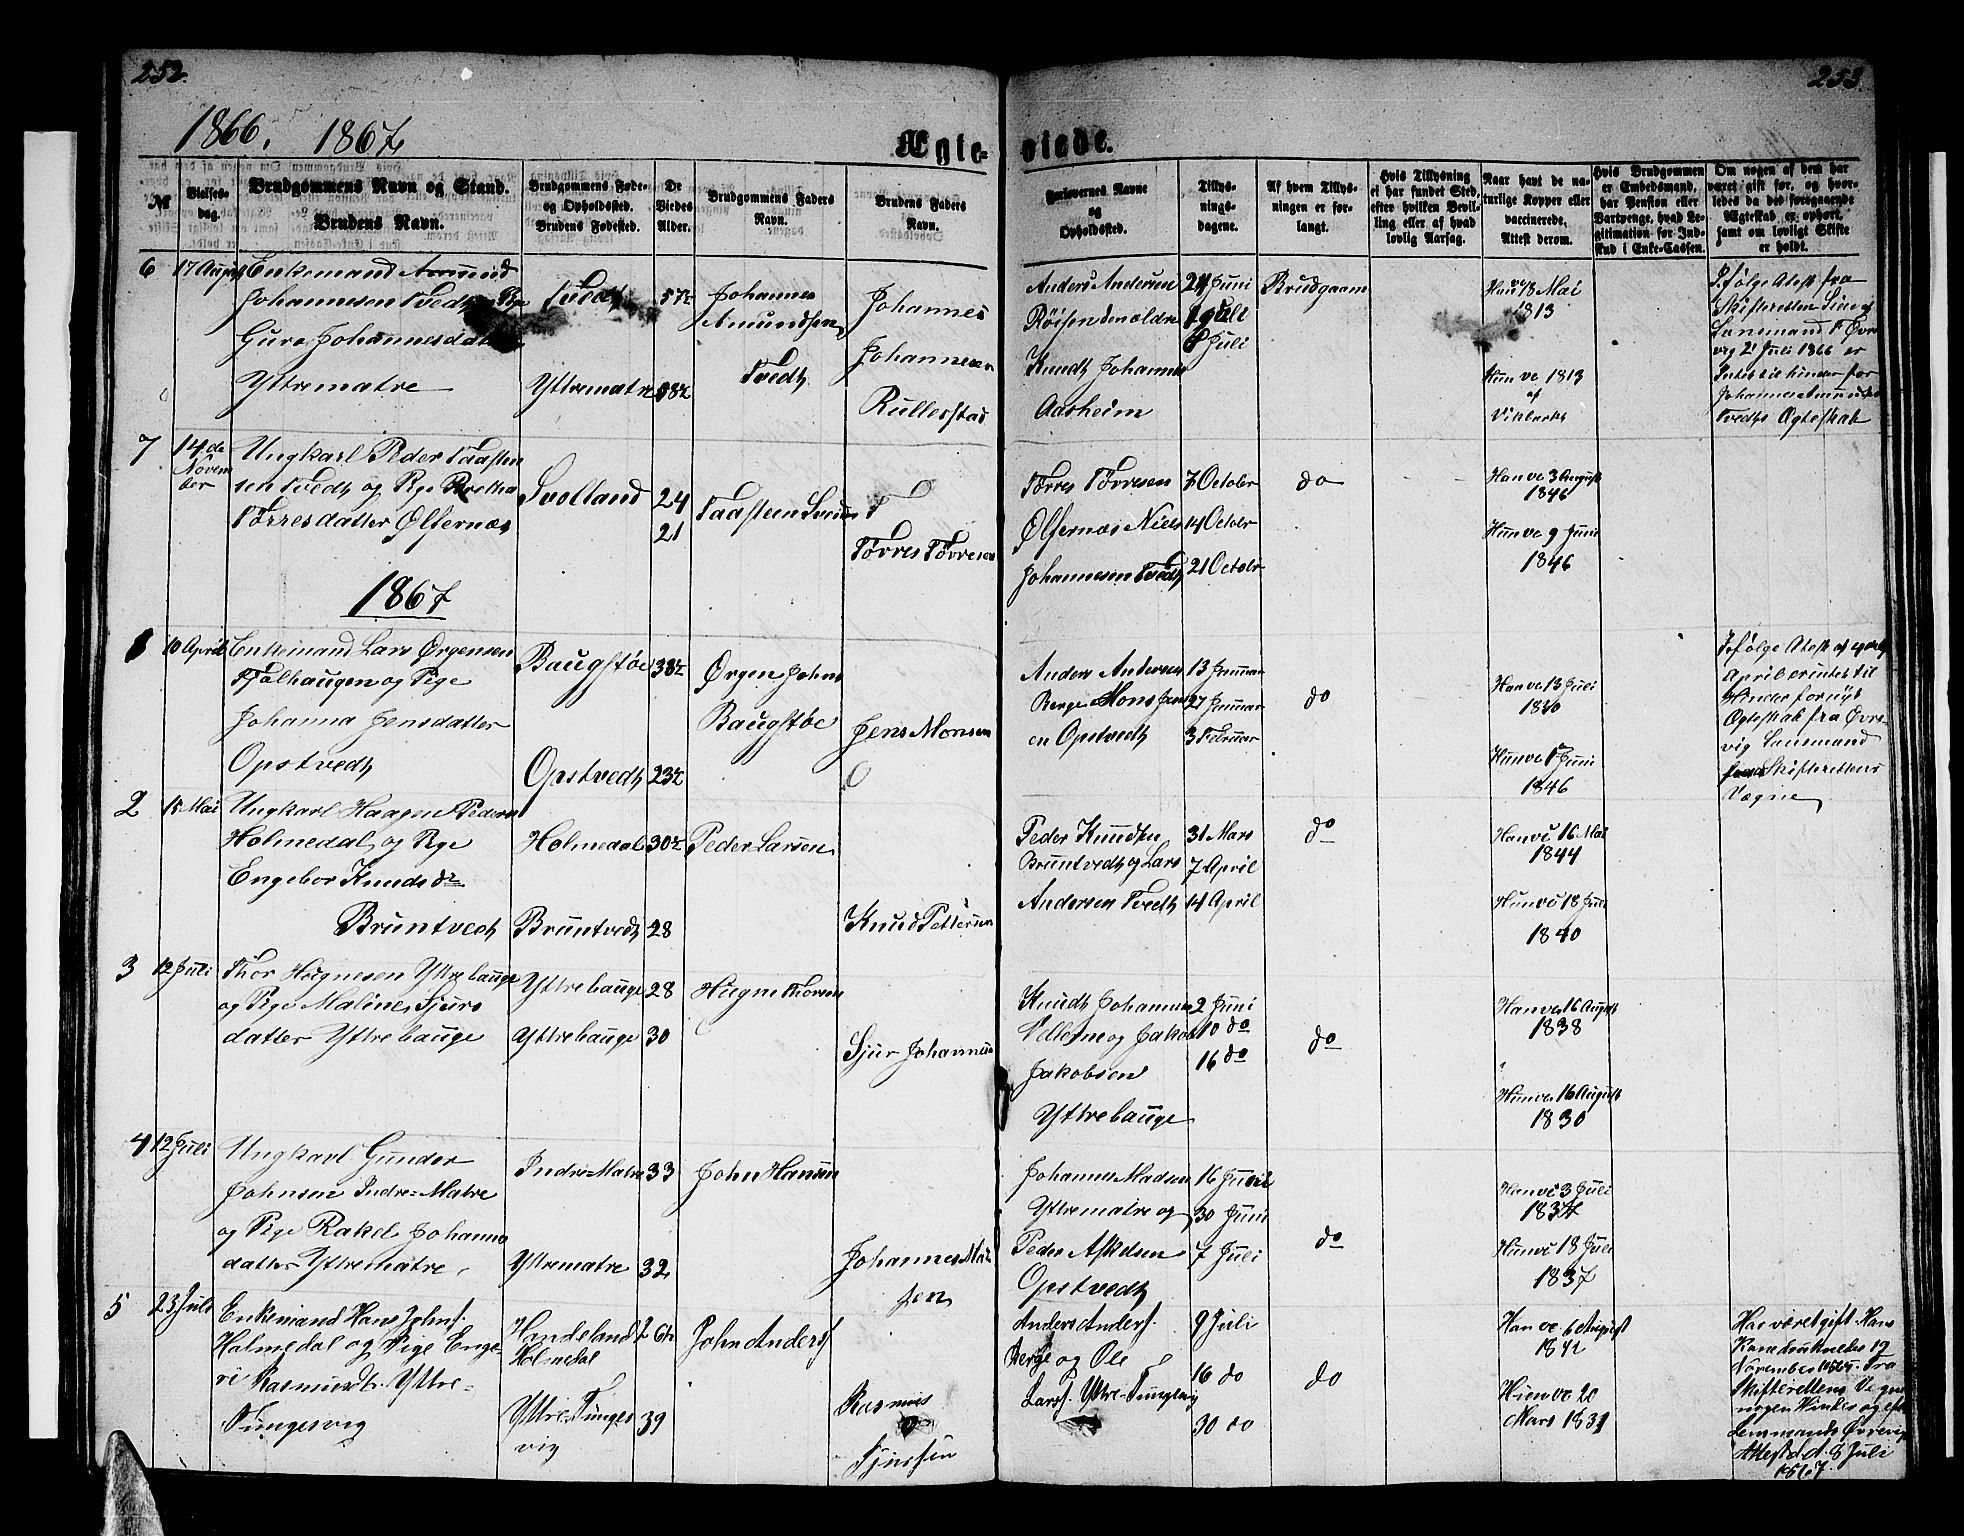 252.
253.
1866. 1867
Ægte-
viede.
No
Vielses-
dag.
Brudgommens Navn og Stand.
Brudens Navn.
Brudgommens Føde-
og Opholdssted.
Brudens Fødested.
De
Viedes
Alder.
Brudgommens Faders
Navn.
Brudens Faders
Navn.
Forlovernes Navne
og
Opholdssted.
Tillys-
nings-
dagene.
Af hvem Tillys-
ningen er for-
langt.
Hvis Tillysning
ei har fundet Sted,
efter hvilken Bevil-
ling eller af hvad
lovlig Aarsag.
Naar havt de na-
turlige Kopper eller
vaccinerede,
Attest derom.
Hvis Brudgommen
er Embedsmand,
har Pension eller
Vartpenge, hvad Le-
gitimation for Ind-
skud i Enke-Cassen.
Om nogen af dem har
været gift før, og hvor-
ledes da det foregaaende
Ægteskab er ophørt,
samt om lovligt Skifte
er holdt.
6
17 August
Enkemand Amund
Johannesen Tvedt og Pige
Guro Johannesdatter
Yttrematre
Tvedt
Yttrematre
57½
Johannes
Amundsen
Tvedt
Johannes
Johannesen
Rullestad
Anders Andersen
Røisen den ældre
Knudt Johannes
Aasheim
24 Juni
1 Juli
8 Juli
Brudgaam
Han ve 18 Mai
1813
Hun ve 1813
af
Skifteretten
Lensmand
vig 21 Juli 1866 er
Intet til hinder for
Johannes Amunds
Tvedts Ægteskab
7
14.de
Novem
ber
Ungkarl Peder Taasten
sen Tvedt og Pge Bretha
Tørresdatter Ølfernæs
Svolland
24
21
Tørres Tørresen
Tørres Tørresen
Ølfernæs Niels
Johannesen Tvedt
7 October
14 Octobr
21 Octobr
do
Han ve 3 August
1846
Hun ve 9 Juni
1846
1867
1
10 April
Enkemand Lars Ørgensen
Tjølhaugen og Pige
Johanna Jensdatter
Opstvedt
Baugstøe
Opstvedt
38½
23½
Ørgen Johns
Baugstøe
Jens Monsen
Anders Andersen
Berge Mons Jens
en Opstvedt
13 Januar
27 Januar
3 Februar
do
Han ve 13 Juli
1830
Hun ve 17 Juni
1846
Ifølge Attest af
April er intet til
Hinder for nyt
Ægteskab fra Øvre-
vig Lensmand
Skifterettens
Vægne
2
15 Mai
Ungkarl Haagen Peders
Holmedal og Pge
Engebor Knuds dr
Bruntvedt
Holmedal
Bruntvedt
30½
28
Peder Larsen
Knud Pettersen
Peder Knudsen
Bruntvedt og Lars
Andersen Tvedt
31 Mars
7 April
14 April
do
Han ve 16 Mai
1844
Hun ve 18 Juli
1840
3
12 Juli
Thor Høgnesen Yttrebauge
og Pige Maline Sjurs
datter Yttrebauge
Yttrebauge
Yttrebauge
28
30
Høgne Thorsen
Sjur Johannesen
Knudt Johannes
Vellene og Jakob
Jakobsen
Yttrebauge
2 Juni
10 do
16 do
do
Han ve 16 August
1838
Hun ve 16 August
1830
4
12 Juli
Ungkarl Gunder
Johnsen Indre-Matre
og Pige Rakel Johannes
datter Yttrematre
Indre-Matre
Yttrematre
33
32
John Hansen
Johannes Mad
sen
Johannes Madsen
Yttrematre og
Peder Askelsen
Opstvedt
16 Juni
30 Juni
7 Juli
do
Han ve 3 Juli
1834
Hun ve 18 Juli
1837
5
23 Juli
Enkemand Hans Johns.
Holmedal og Pige Enge-
ri Rasmusdt. Yttre-
Tungesvig
Handeland
Holmedal
Yttre Tunges
vig
39
John Anders.
Rasmus
Anders Anders.
Berge og Ole
Lars. Yttre-Tungesvig
9 Juli
16 do
30 do
do
Han ve 6 August
1842
Hun ve 20
Mars 1831
Har været gift. Hans
Kone
November
Skifterettens
Lensmands
Attest d.d. 8 Juli
1867.